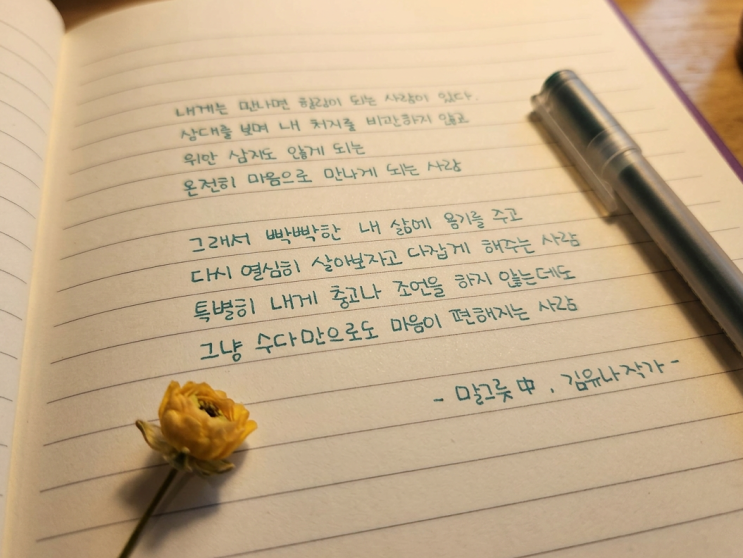 내게는 만나면 힐링이 되는 사람이 있다.
상대를 보며 내 처지를 비관하지 않고
위안 삼지도 않게 되는
온전히 마음으로 만나게 되는 사람
그래서 빡빡한 내 삶에 용기를 주고
다시 열심히 살아보자고 다잡게 해주는 사람
특별히 내게 충고나 조언을 하지 않는데도
그냥 수다만으로도 마음이 편해지는 사람
- 말그릇 中, 김유나작가 -